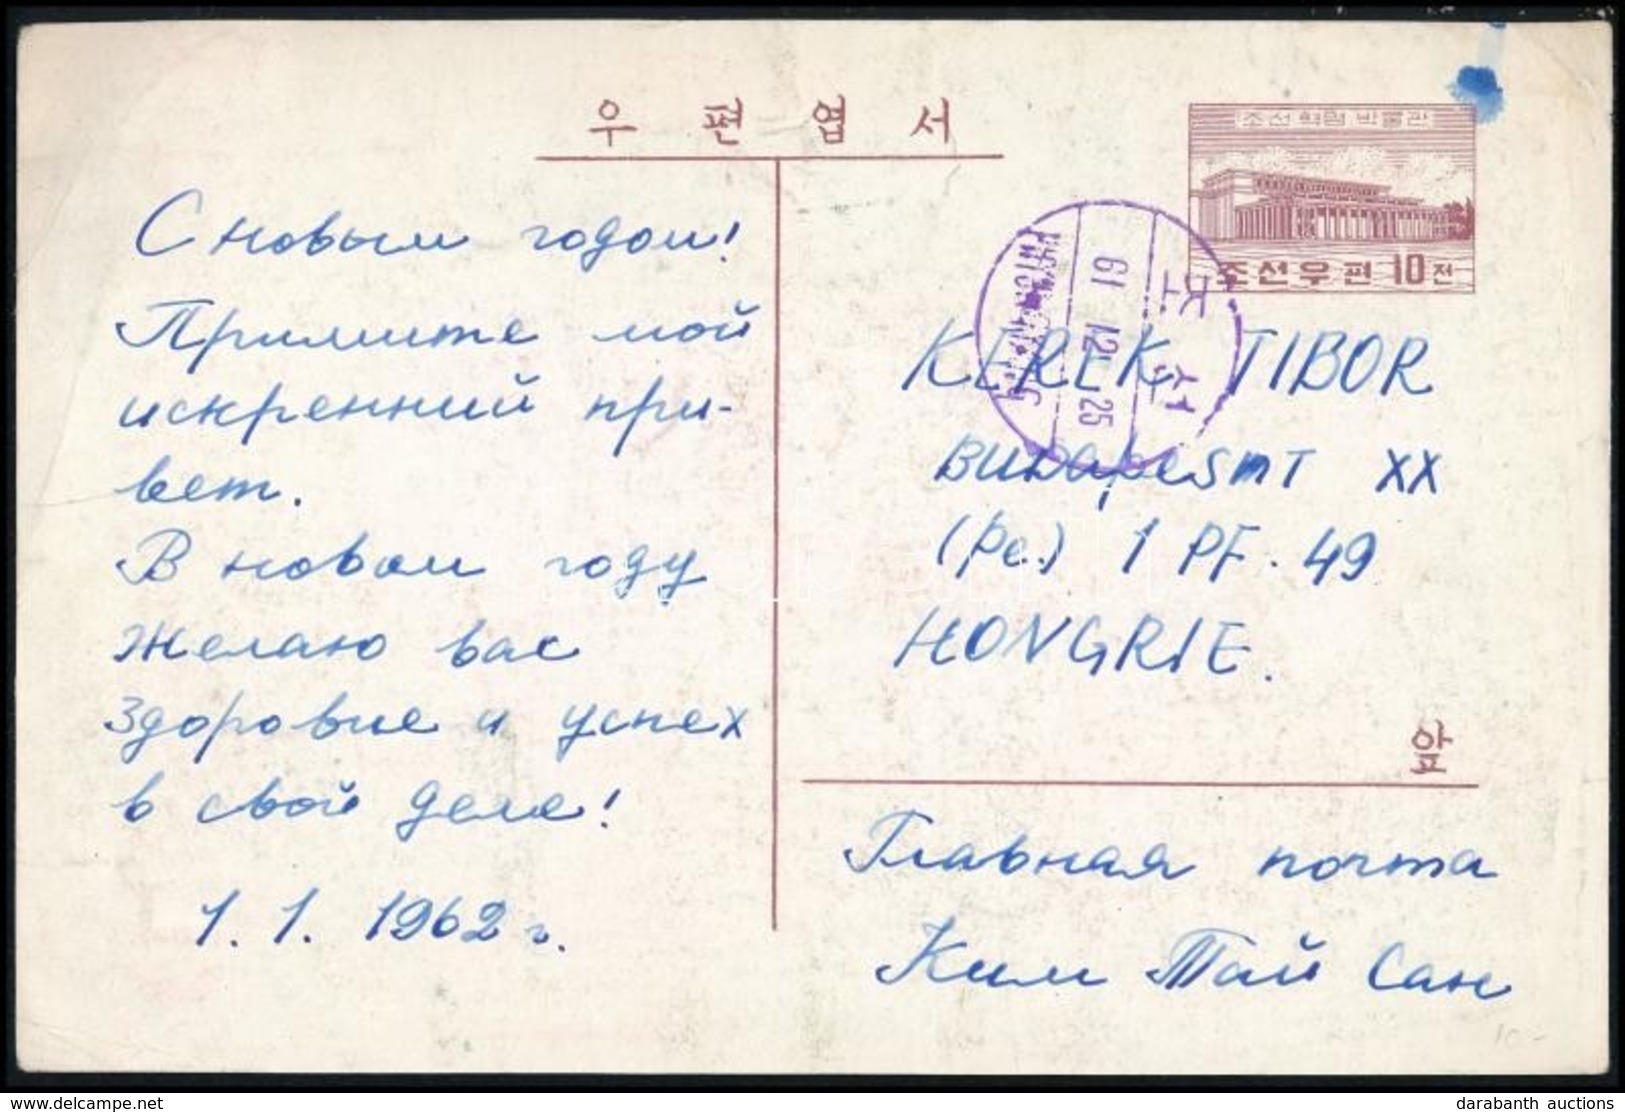 우편엽서
조선혁명박물관
조선우편 10전
조선
61 12. 25
С новым годом!
Примите мой
искренний при-
вет.
В новом году
желаю вас
здоровие и успех
в свой деле!
1. 1. 1962 г.
KEREK TIBOR
BUDAреSmT XX
(Pe.) 1 PF. 49
HONGRIE.
앞
Главная почта
Ким Тай Сан
10-
delcampe.net
darabanth auctions